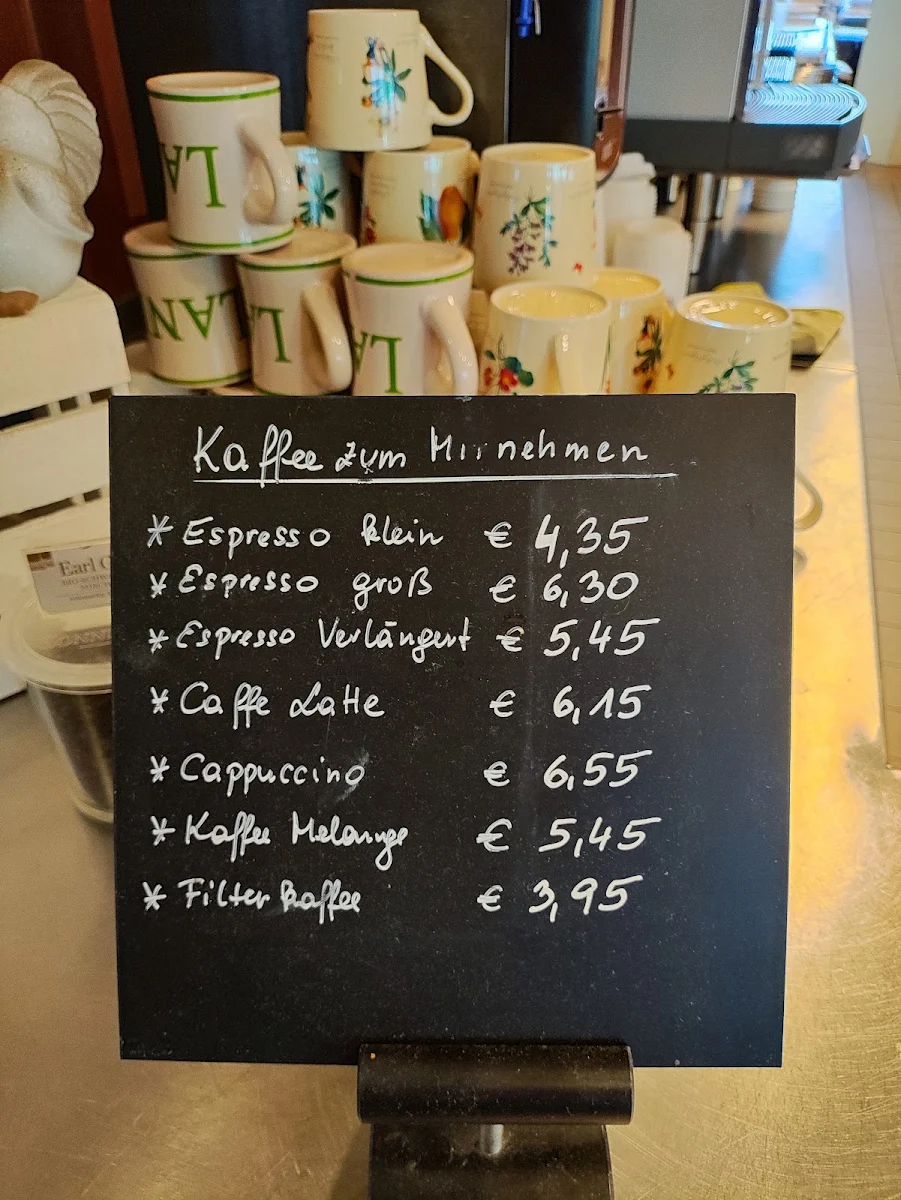 LA
LAN
L
LA
Earl
Kaffee zum Mitnehmen
* Espresso klein € 4,35
* Espresso groß € 6,30
* Espresso Verlängert € 5,45
* Caffe Latte € 6,15
* Cappuccino € 6,55
* Kaffee Melange € 5,45
* Filterkaffee € 3,95